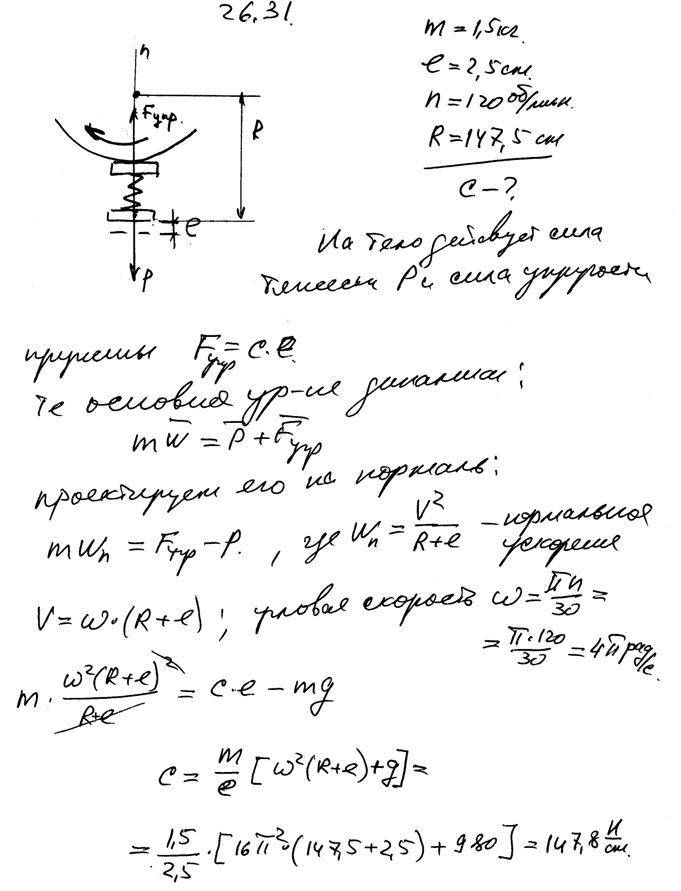 26.31.
m = 1,5 кг.
e = 2,5 см.
n = 120 об/мин.
R = 147,5 см
c – ?
n
Fупр.
R
e
P
На тело действует сила
тяжести P и сила упругости
пружины Fупр = c·e.
основное ур-ие динамики:
mw̄ = P̄ + F̄упр
проектируем его на нормаль:
mWn = Fупр – P. , где Wn = V²/(R+e) – нормальное ускорение
V = ω·(R+e) ; угловая скорость ω = πn/30 =
= π·120/30 = 4π рад/с.
m · ω²(R+e)²/(R+e) = c·e – mg
c = m/e [ω²(R+e)+g] =
= 1,5/2,5 · [16π²·(147,5+2,5) + 980] = 147,8 Н/см.